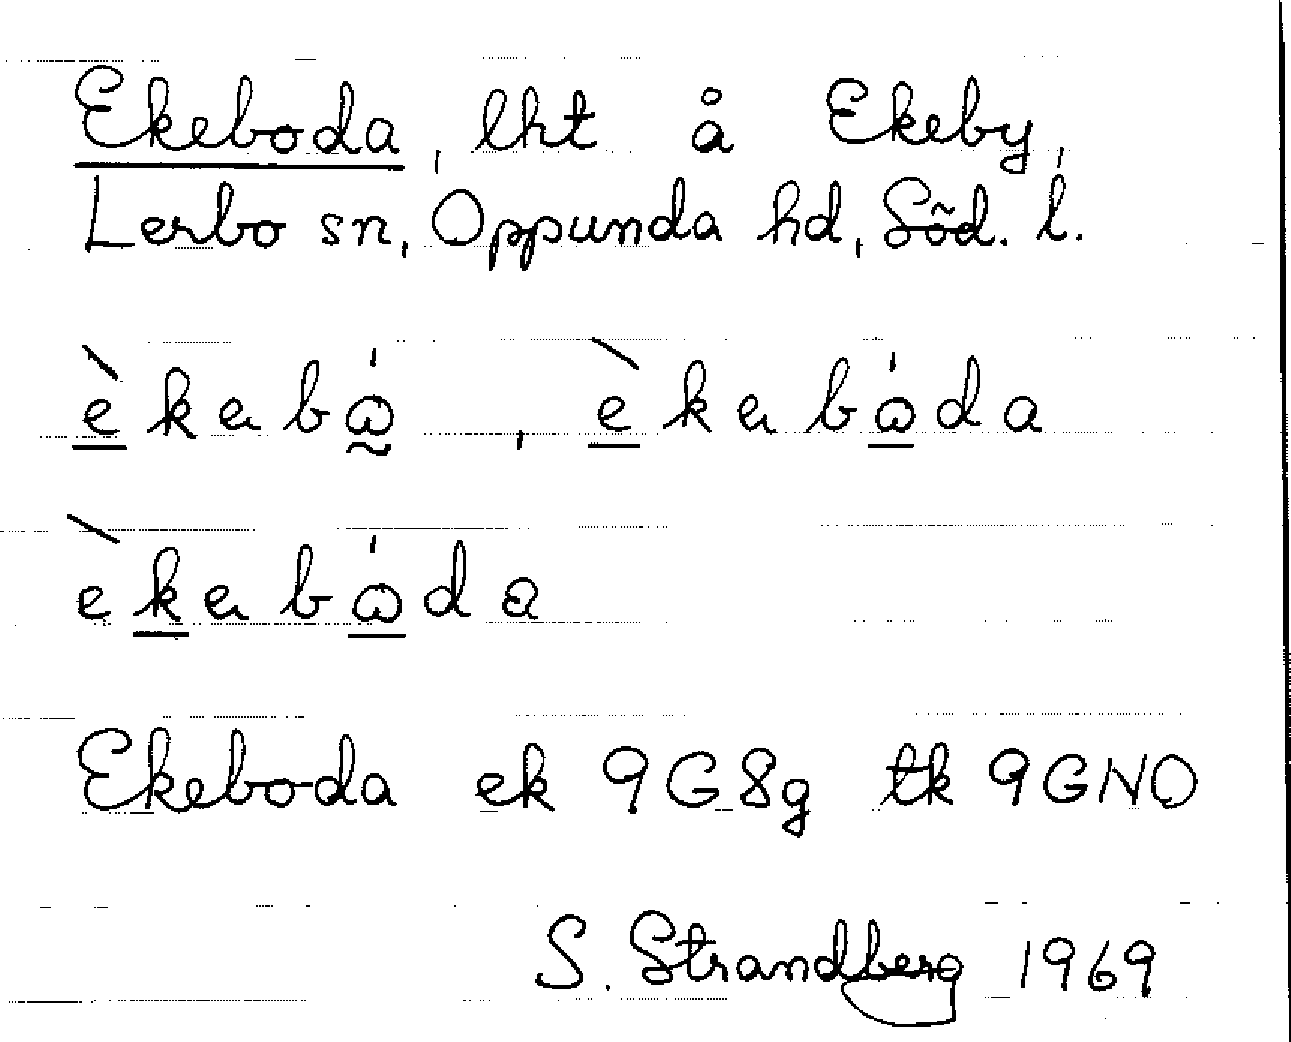 Ekeboda, lht å Ekeby,
Lerbo sn, Oppunda hd, Söd. l.
èkebω̃́, èkebώda
èkebώda
Ekeboda ek 9G8g tk 9GNO
S. Strandberg 1969